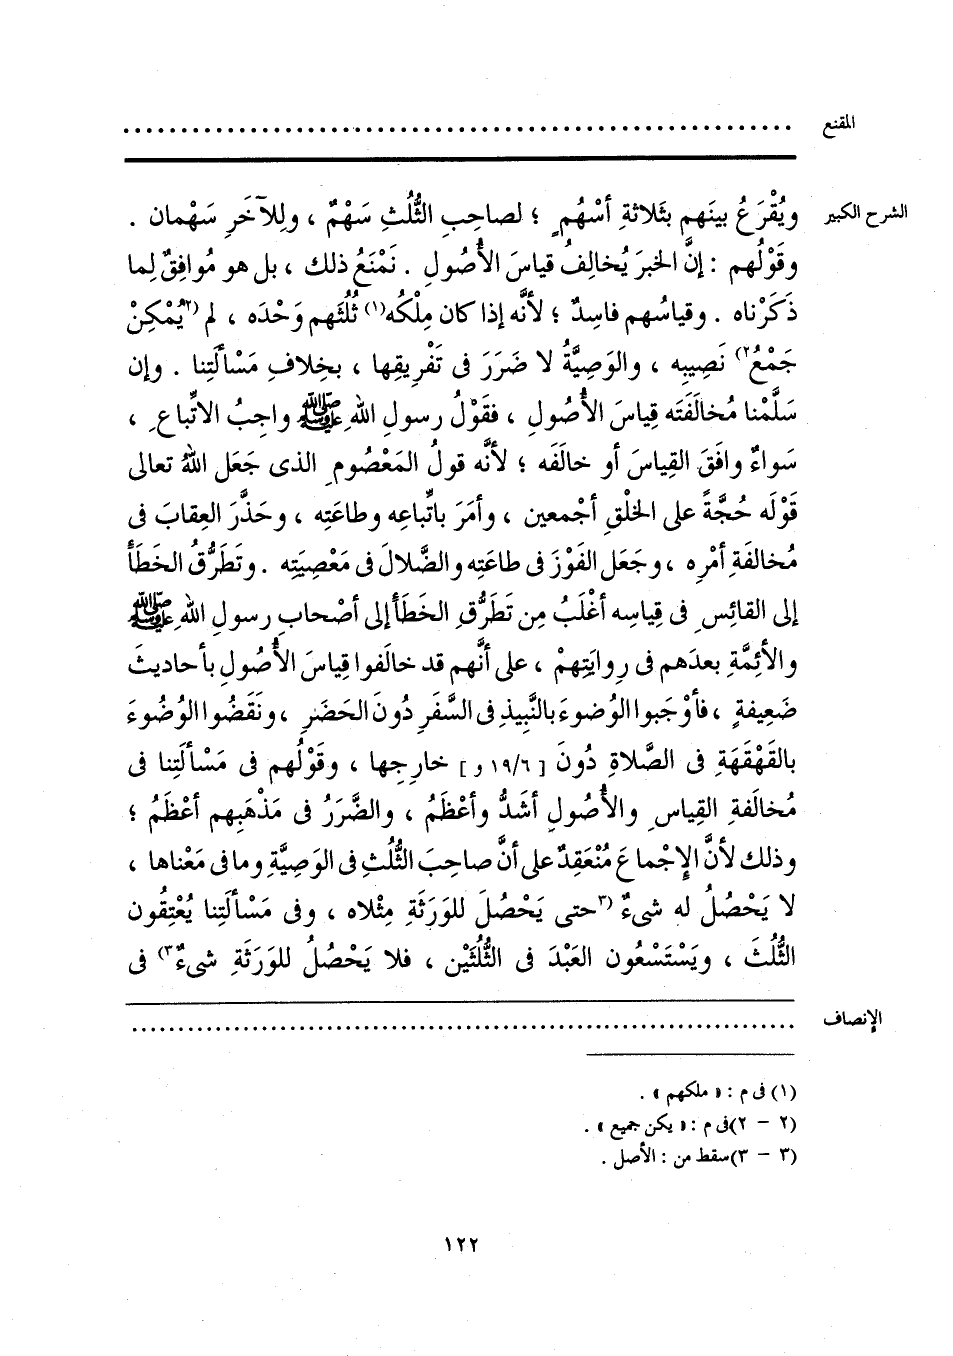 المقنع ................................................................
الشرح الكبير ويُقْرَعُ بينَهم بثَلاثةِ أسْهُمٍ ؛ لصاحبِ الثُّلُثِ سَهْمٌ ، وللآخَرِ سَهْمان .
وقَوْلُهم : إنَّ الخبرَ يُخالِفُ قياسَ الأُصُولِ . نَمْنَعُ ذلك ، بل هو مُوافِقٌ لِما
ذَكَرْناه . وقياسُهم فاسِدٌ ؛ لأنَّه إذا كان مِلْكُه(١) ثُلُثَهم وَحْدَه ، لم (٢يُمْكِنْ
جَمْعُ٢) نَصِيبِه ، والوَصِيَّةُ لا ضَرَرَ فى تَفْرِيقِها ، بخِلافِ مَسْألَتِنا . وإن
سَلَّمْنا مُخالَفَتَه قِياسَ الأُصُولِ ، فقَوْلُ رسولِ اللهِ ﷺ واجِبُ الاتِّباعِ ،
سَواءٌ وافَقَ القِياسَ أو خالَفَه ؛ لأنَّه قولُ المَعْصُومِ الذى جَعَل اللهُ تعالى
قَوْلَه حُجَّةً على الخلْقِ أجْمعين ، وأمَرَ باتِّباعِه وطاعَتِه ، وحَذَّرَ العِقابَ فى
مُخالفَةِ أمْرِه ، وجَعَل الفَوْزَ فى طاعَتِه والضَّلالَ فى مَعْصِيَتِه . وتَطَرُّقُ الخَطَأ
إلى القائِسِ فى قِياسِه أغْلَبُ مِن تَطَرُّقِ الخَطَأ إلى أصْحابِ رسولِ اللهِ ﷺ
والأئِمَّةِ بعدَهم فى رِوايَتِهِمْ ، على أنَّهم قد خالَفوا قِياسَ الأُصُولِ بأحاديثَ
ضَعِيفةٍ ، فأوْجَبوا الوُضوءَ بالنَّبِيذِ فى السَّفَرِ دُونَ الحَضَرِ ، ونَقَضُوا الوُضُوءَ
بالقَهْقَهَةِ فى الصَّلاةِ دُونَ [ ١٩/٦ و ] خارِجِها ، وقَوْلُهم فى مَسْألَتِنا فى
مُخالفَةِ القِياسِ والأُصُولِ أشَدُّ وأعْظَمُ ، والضَّرَرُ فى مَذْهَبِهم أعْظَمُ ؛
وذلك لأنَّ الإِجْماعَ مُنْعَقِدٌ على أنَّ صاحِبَ الثُّلُثِ فى الوَصِيَّةِ وما فى مَعْناها ،
لا يَحْصُلُ له شىءٌ (٣حتى يَحْصُلَ للوَرَثَةِ مِثْلاه ، وفى مَسْألَتِنا يُعْتِقُون
الثُّلُثَ ، ويَسْتَسْعُون العَبْدَ فى الثُّلُثَيْن ، فلا يَحْصُلُ للوَرَثَةِ شىءٌ٣) فى
الإنصاف ................................................................
(١) فى م : « ملكهم » .
(٢ - ٢) فى م : « يكن جميع » .
(٣ - ٣) سقط من : الأصل .
١٢٢